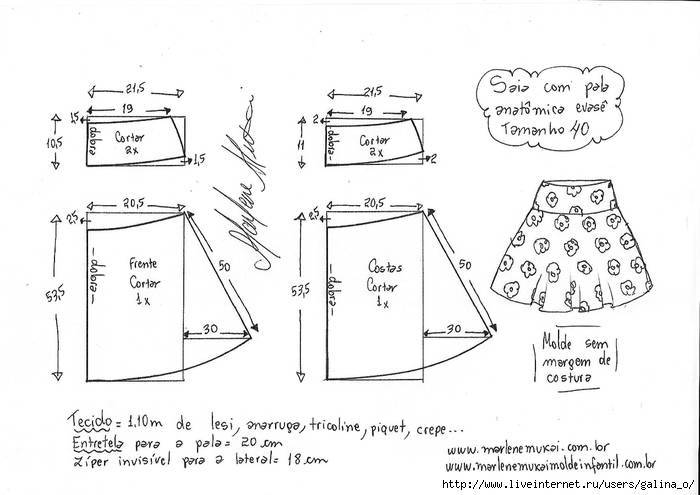 21,5
19
1,5
10,5
dobra
Cortar
2x
1,5
21,5
19
2
11
dobra
Cortar
2x
2
Marlene Mukai
Saia com pala
anatômica evasê
Tamanho 40
20,5
2,5
53,5
dobra
Frente
Cortar
1x
50
30
20,5
2,5
53,5
dobra
Costas
Cortar
1x
50
30
Molde sem
margem de
costura
Tecido = 1,10m de lesi, anarruga, tricoline, piquet, crepe...
Entretela para a pala = 20 cm
Zíper invisível para a lateral = 18 cm
www.marlenemukai.com.br
www.marlenemukaimoldeinfantil.com.br
http://www.liveinternet.ru/users/galina_o/